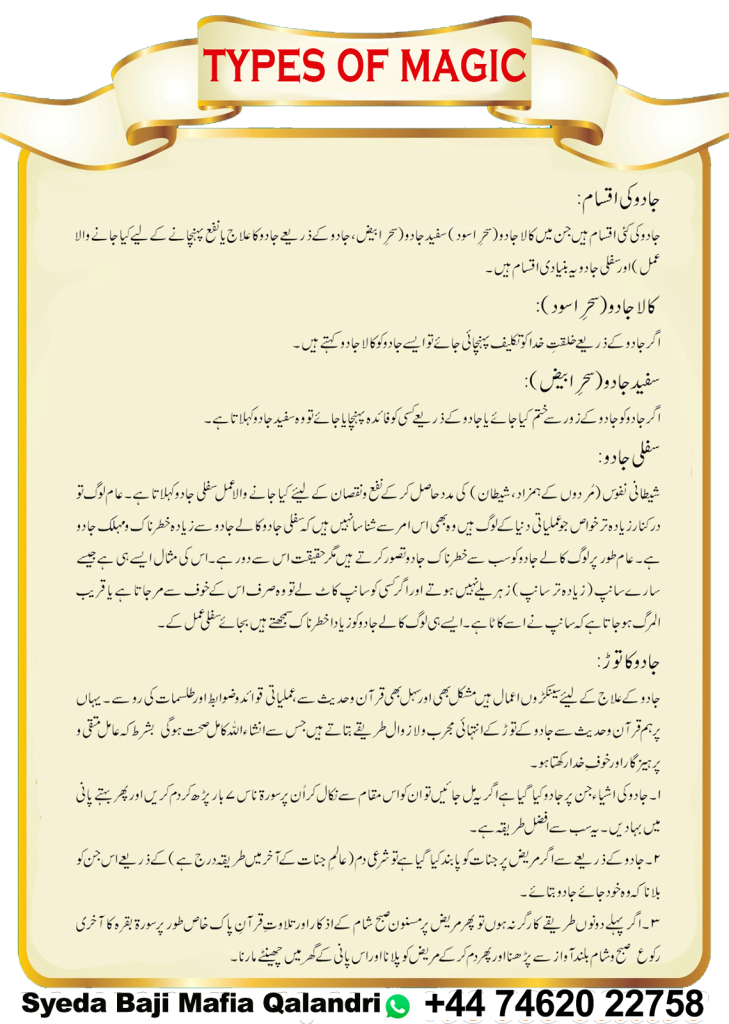 TYPES OF MAGIC
جادو کی اقسام:
جادو کی کئی اقسام ہیں جن میں کالا جادو (سحرِ اسود) سفید جادو (سحرِ ابیض، جادو کے ذریعے جادو کا علاج یا نفع پہنچانے کے لیے کیا جانے والا
عمل) اور سفلی جادو یہ بنیادی اقسام ہیں۔
کالا جادو (سحرِ اسود):
اگر جادو کے ذریعے خلقتِ خدا کو تکلیف پہنچائی جائے تو ایسے جادو کو کالا جادو کہتے ہیں۔
سفید جادو (سحرِ ابیض):
اگر جادو کو جادو کے زور سے ختم کیا جائے یا جادو کے ذریعے کسی کو فائدہ پہنچایا جائے تو وہ سفید جادو کہلاتا ہے۔
سفلی جادو:
شیطانی نفوس (مُردوں کے ہمزاد، شیطان) کی مدد حاصل کر کے نفع و نقصان کے لیئے کیا جانے والا عمل سفلی جادو کہلاتا ہے۔ عام لوگ تو
درکنار زیادہ تر خواص جو عملیاتی دنیا کے لوگ ہیں وہ بھی اس امر سے شناسا نہیں ہیں کہ سفلی جادو کالے جادو سے زیادہ خطرناک و مہلک جادو
ہے۔ عام طور پر لوگ کالے جادو کو سب سے خطرناک جادو تصور کرتے ہیں مگر حقیقت اس سے دور ہے۔ اس کی مثال ایسے ہی ہے جیسے
سارے سانپ (زیادہ تر سانپ) زہریلے نہیں ہوتے اور اگر کسی کو سانپ کاٹ لے تو وہ صرف اس کے خوف سے مر جاتا ہے یا قریب
المرگ ہو جاتا ہے کہ سانپ نے اسے کاٹا ہے۔ ایسے ہی لوگ کالے جادو کو زیادا خطرناک سمجھتے ہیں بجائے سفلی عمل کے۔
جادو کا توڑ:
جادو کے علاج کے لیئے سینکڑوں اعمال ہیں مشکل بھی اور سہل بھی قرآن و حدیث سے، عملیاتی قوائد و ضوابط اور طلسمات کی رو سے۔ یہاں
پر ہم قرآن و حدیث سے جادو کے توڑ کے انتہائی مجرب و لازوال طریقے بتاتے ہیں جس سے انشاءاللہ کامل صحت ہوگی بشرط کہ عامل متقی و
پرہیزگار اور خوفِ خدا رکھتا ہو۔
۱۔ جادو کی اشیاء جن پر جادو کیا گیا ہے اگر یہ مل جائیں تو ان کو اس مقام سے نکال کر اُن پر سورۃ ناس ۷ بار پڑھ کر دم کریں اور پھر بہتے پانی
میں بہا دیں۔ یہ سب سے افضل طریقہ ہے۔
۲۔ جادو کے ذریعے سے اگر مریض پر جنات کو پابند کیا گیا ہے تو شرعی دم (عالمِ جنات کے آخر میں طریقہ درج ہے) کے ذریعے اس جن کو
بلانا کہ وہ خود جائے جادو بتائے۔
۳۔ اگر پہلے دونوں طریقے کارگر نہ ہوں تو پھر مریض پر مسنون صبح شام کے اذکار اور تلاوتِ قرآنِ پاک خاص طور پر سورۃ بقرہ کا آخری
رکوع صبح و شام بلند آواز سے پڑھنا اور پھر دم کر کے مریض کو پلانا اور اس پانی کے گھر میں چھینٹے مارنا۔
Syeda Baji Mafia Qalandri +44 74620 22758